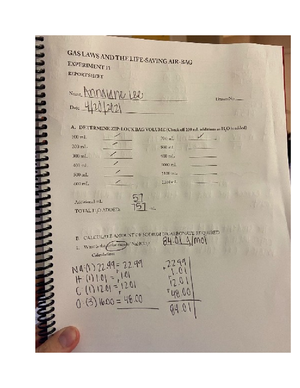 GAS LAWS AND THE LIFE-SAVING AIR-BAG
EXPERIMENT 11
REPORT SHEET
Name Annalane Lee
Date 4/20/2021
A. DETERMINE ZIP-LOCK BAG VOLUME (Check off 100 mL additions as H₂O is added)
100 mL ✓ 700 mL ✓
200 mL ✓
300 mL ✓
400 mL ✓
500 mL ✓
600 mL ✓
Additional mL 57
TOTAL H₂O ADDED 757
B. CALCULATE AMOUNT OF SODIUM BICARBONATE REQUIRED
84.01 g/mol
Calculation:
Na (1) 22.99 = 22.99
H (1) 1.01 = 1.01
C (1) 12.01 = 12.01
O (3) 16.00 = 48.00
22.99
1.01
12.01
48.00
84.01